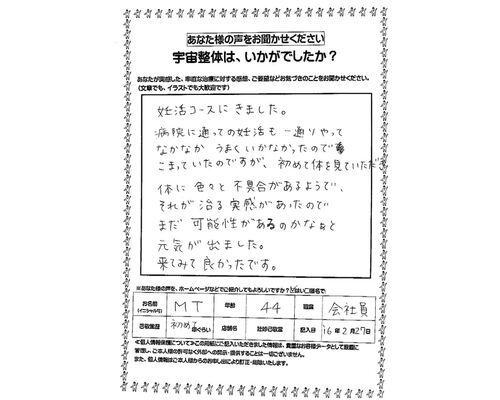 あなた様の声をお聞かせください
宇宙整体は、いかがでしたか？
あなたが実感した、率直な治療に対する感想、ご要望などお気づきのことをお聞かせください。
(文章でも、イラストでも大歓迎です)
妊活コースにきました。
病院に通っての妊活も一通りやって
なかなかうまくいかなかったので
こまっていたのですが、初めて体を見ていただき
体に色々と不具合があるようで、
それが治る実感があったので
まだ可能性があるのかなぁと
元気が出ました。
来てみて良かったです。
※あなた様の声を、ホームページなどでご紹介してもよろしいですか？ はい 匿名で
お名前 (イニシャル可) MT 年齢 44 職業 会社員
初めて ぐらい 店舗名 記入日 16年2月27日
≪個人情報保護について≫この用紙にご記入いただきました情報は、貴重なお客様データとして厳重に
管理し、ご本人様の許可なく外部への開示・提供することは一切ございません。
また、個人情報はご本人様からのお申し出により訂正・削除いたします。